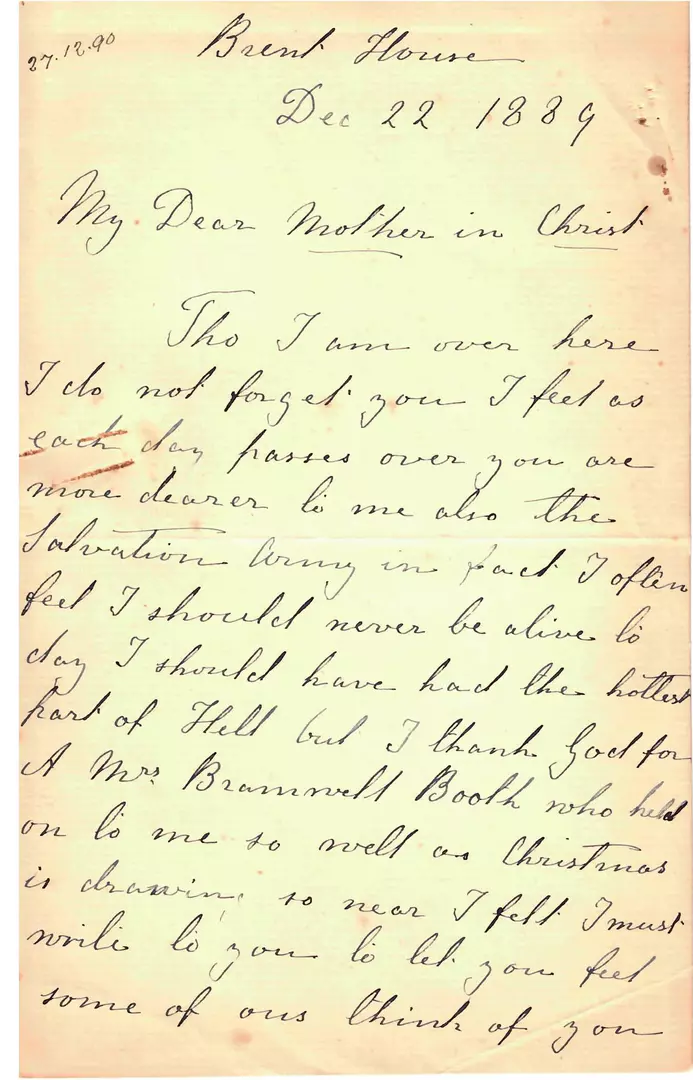 27.12.90
Brent House
Dec 22 1889
My Dear Mother in Christ
Tho I am over here
I do not forget you I feel as
each day passes over you are
more dearer to me also the
Salvation Army in fact I often
feel I should never be alive to
day I should have had the hottest
part of Hell but I thank God for
A Mrs Bramwell Booth who held
on to me so well as Christmas
is drawing so near I felt I must
write to you to let you feel
some of ous think of you